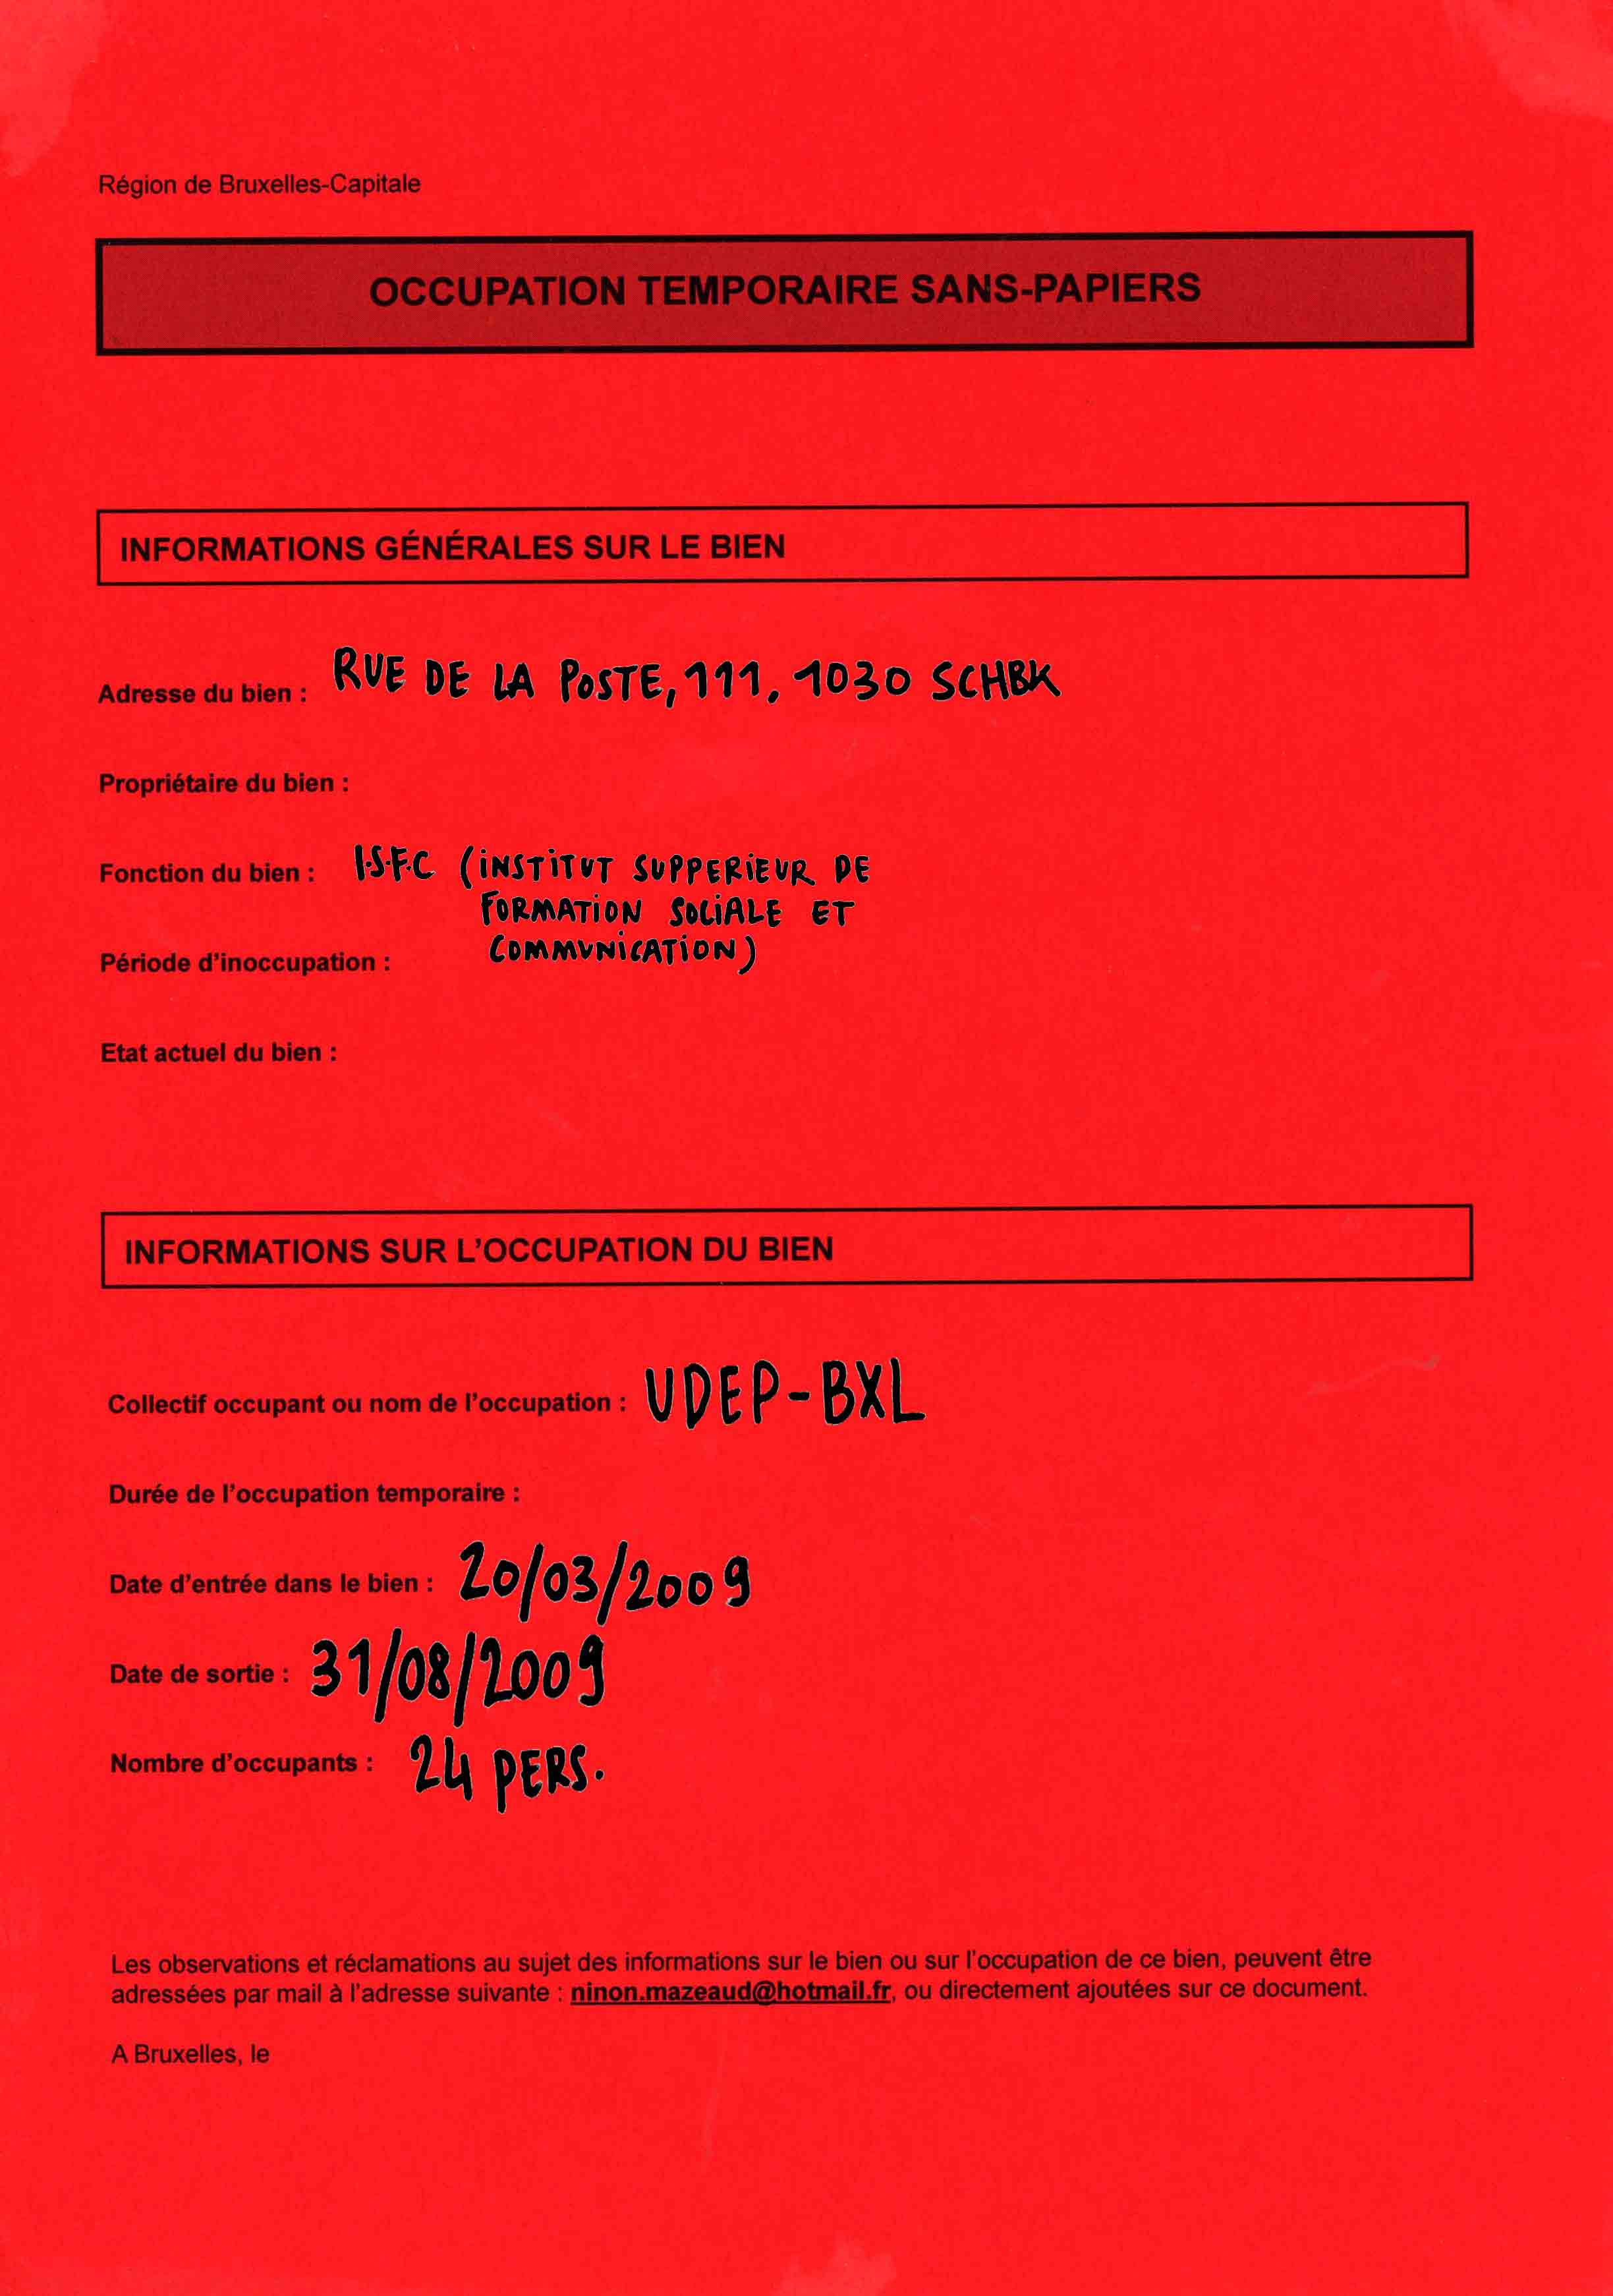 Région de Bruxelles-Capitale
OCCUPATION TEMPORAIRE SANS-PAPIERS
INFORMATIONS GÉNÉRALES SUR LE BIEN
Adresse du bien : RUE DE LA POSTE, 111, 1030 SCHBK
Propriétaire du bien :
Fonction du bien : I.S.F.C (INSTITUT SUPPERIEUR DE
FORMATION SOCIALE ET
COMMUNICATION)
Période d'inoccupation :
Etat actuel du bien :
INFORMATIONS SUR L'OCCUPATION DU BIEN
Collectif occupant ou nom de l'occupation : UDEP-BXL
Durée de l'occupation temporaire :
Date d'entrée dans le bien : 20/03/2009
Date de sortie : 31/08/2009
Nombre d'occupants : 24 PERS.
Les observations et réclamations au sujet des informations sur le bien ou sur l'occupation de ce bien, peuvent être
adressées par mail à l'adresse suivante : ninon.mazeaud@hotmail.fr, ou directement ajoutées sur ce document.
A Bruxelles, le